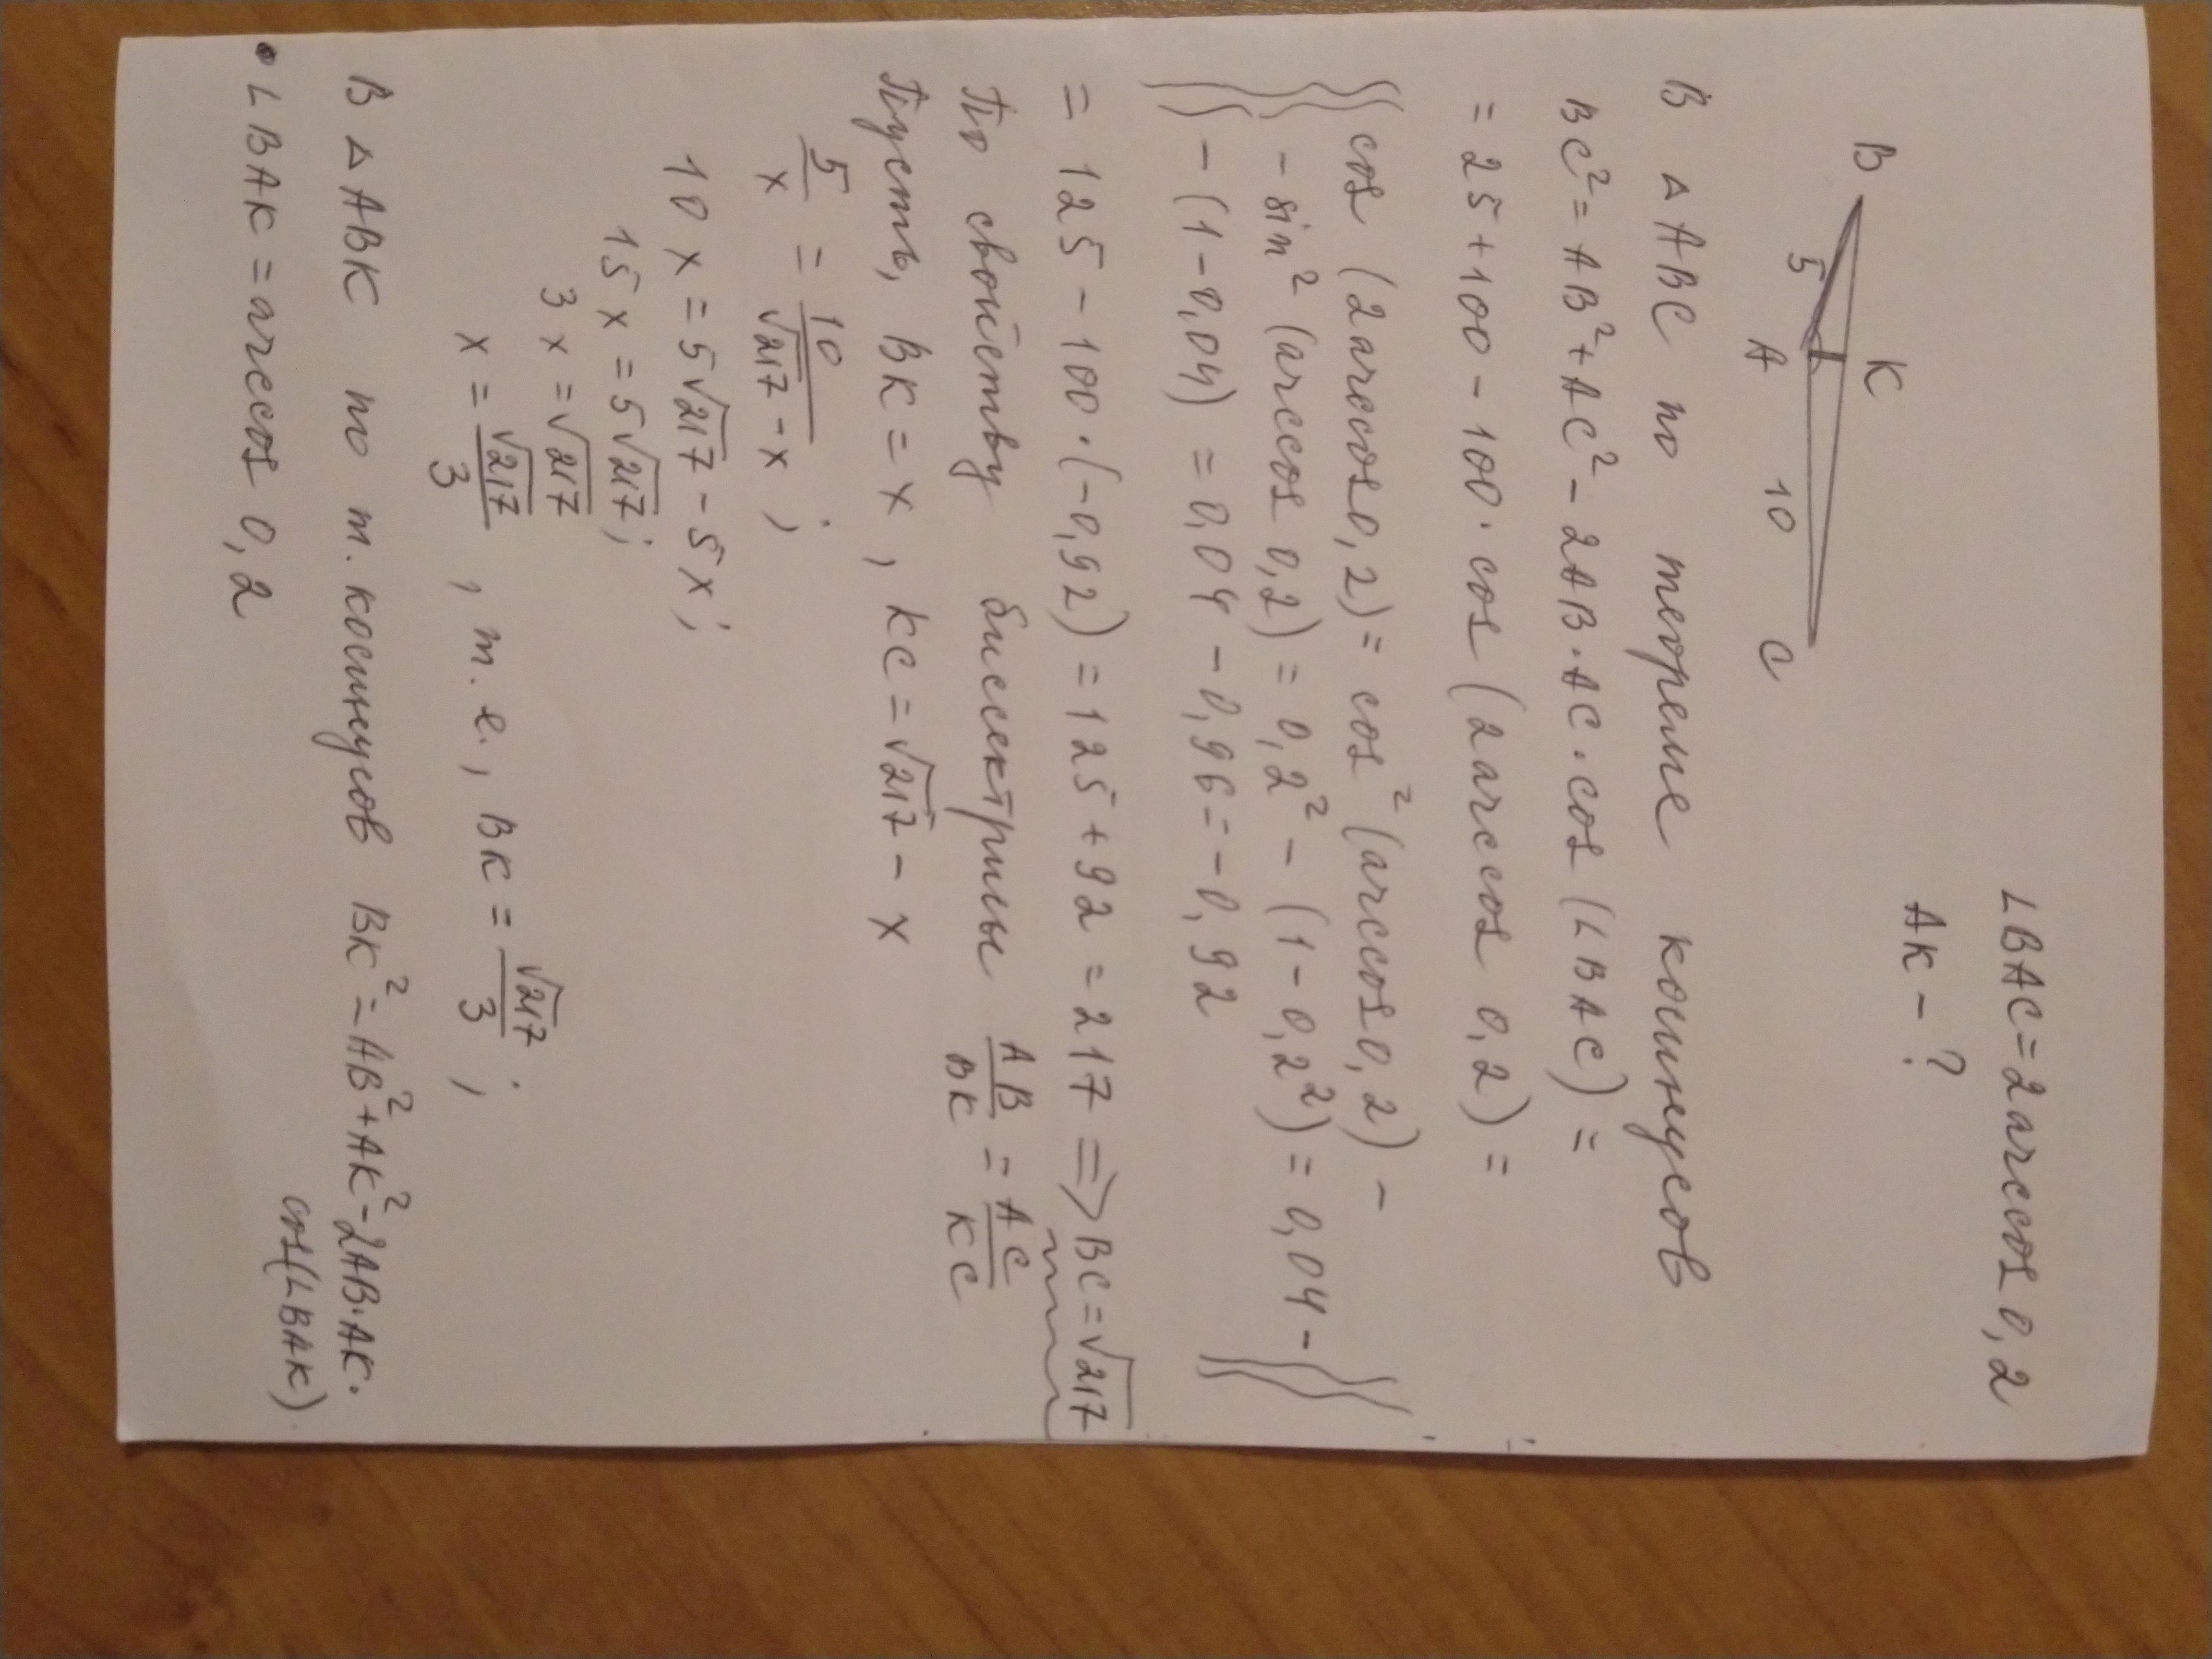 ∠BAC = 2arccos 0,2
AK - ?
B
K
5
A
10
C
В △ ABC по теореме косинусов
BC² = AB² + AC² - 2AB·AC·cos(∠BAC) =
= 25 + 100 - 100·cos(2arccos 0,2) =
cos(2arccos 0,2) = cos²(arccos 0,2) -
- sin²(arccos 0,2) = 0,2² - (1 - 0,2²) = 0,04 -
- (1 - 0,04) = 0,04 - 0,96 = -0,92
= 125 - 100·(-0,92) = 125 + 92 = 217 ⇒ BC = √217
По свойству биссектрисы AB/BK = AC/KC
Пусть, BK = x, KC = √217 - x
5/x = 10/(√217 - x);
10x = 5√217 - 5x;
15x = 5√217;
3x = √217
x = √217/3, т.е., BK = √217/3;
В △ ABK по т. косинусов BK² = AB² + AK² - 2AB·AK·
cos(∠BAK)
• ∠BAK = arccos 0,2